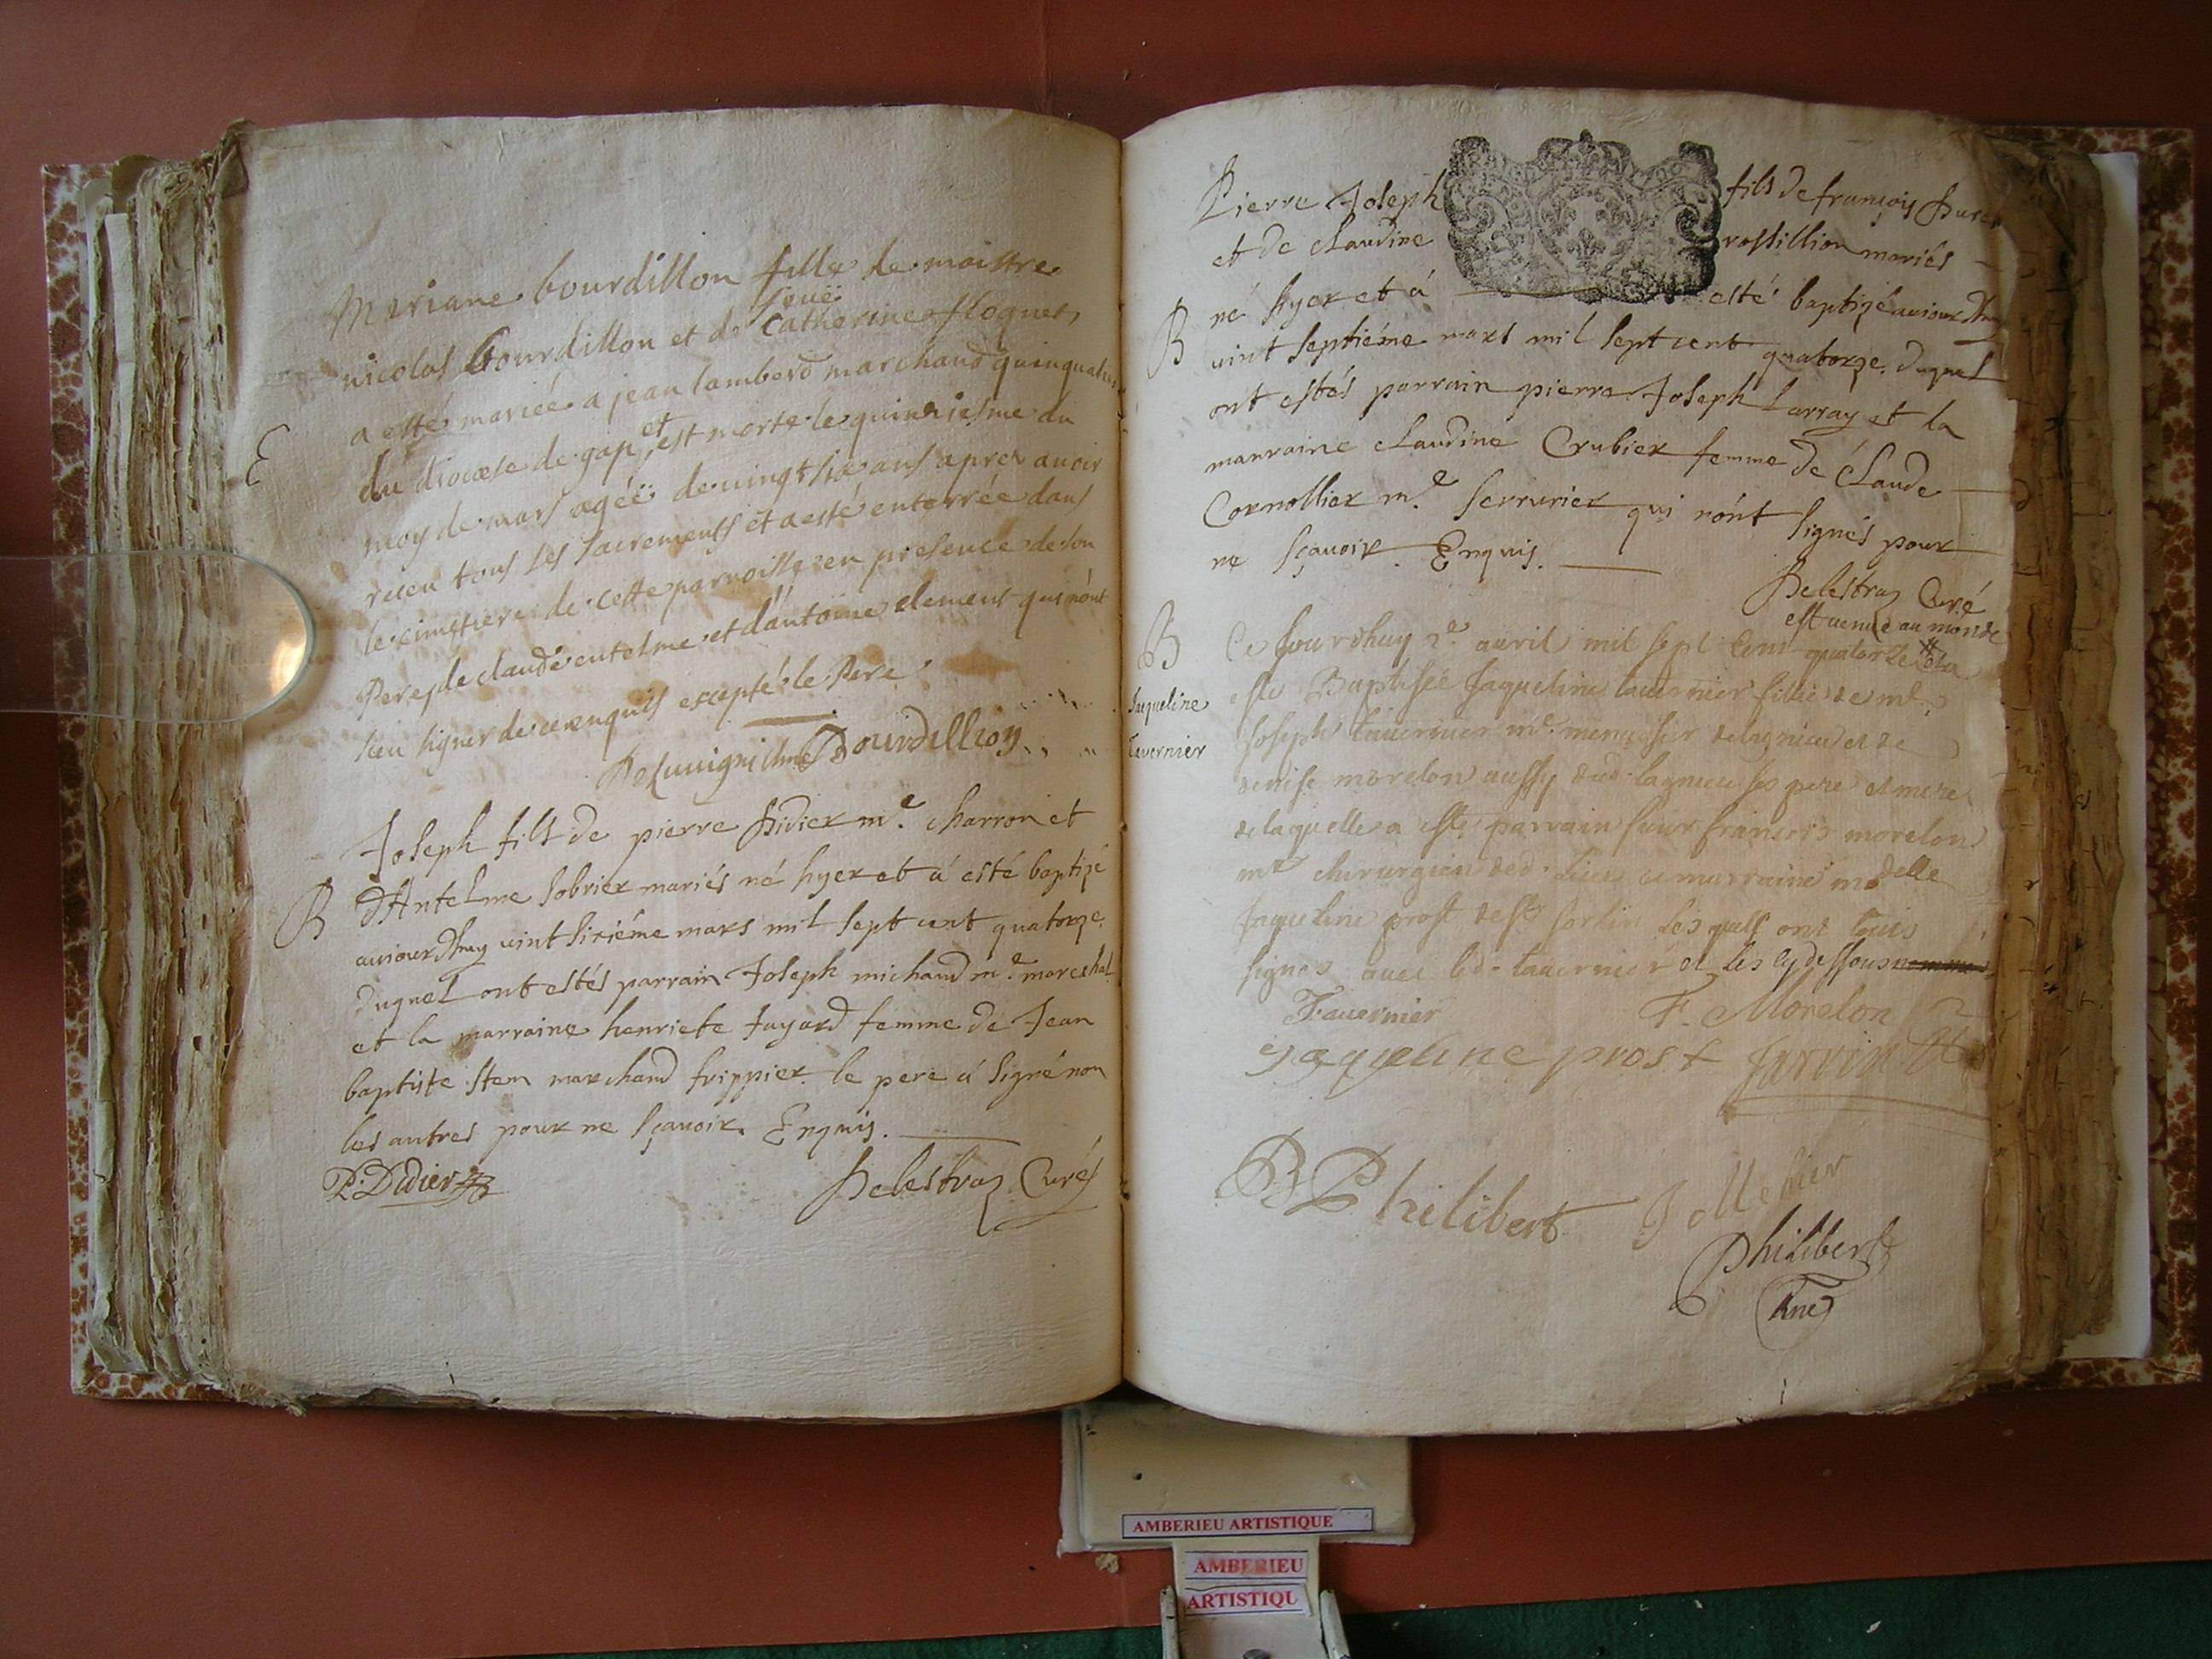 Meriane bourdillon fille de maistre
nicolas bourdillon et de feuë Catherine floquet,
a esté mariée a jean lamberd marchand
E
du diocese de gap, et est morte le quinziesme du
moy de mars agéë de uingt six ans apres auoir
receu tous les sacrements et a esté enterrée dans
le cimetiere de cette parroisse en presence de son
Pere, de claude entelme et d'antoine clement qui nónt
sceu signer de ce enquis excepté le Pere
Bourdillion
Joseph fils de pierre Didier me. charron et
B
d'Antelme Sobrier mariés né hyer et á esté baptizé
auiourdhuy uint sixiéme mars mil sept cent quatorze.
duquel ont estés parrain Joseph michaud me. mareshal
et la marraine henriete Jayard femme de Jean
baptiste Stem marchand frippier. le pere á signé non
les autres pour ne sçauoir. Enquis.
P. Didier
Delestraz Curé
Pierre Joseph fils de françois
et de claudine rossillion mariés
B
né hyer et á esté baptizé auiourdhuy
uint septiéme mars mil sept cent quatorze. duquel
ont estés parrain pierre Joseph Larray et la
marraine claudine Crubier femme dé Claude
Cornollier me. serrurier qui nónt signés pour
ne sçauoir. Enquis.
Delestraz Curé
est uenue au monde
B
Ce Jourdhuy 2e. auril mil sept cent quatorze et a
Jaqueline
Tavernier
esté Baptisée Jaqueline tauernier fille de me.
Joseph tauernier me. menusier de lagnieu et de
denise morelon aussy dud. lagnieu ses pere et mere
de laquelle a esté parrain sieur francois morelon
me chirurgien dud. lieu et marraine madelle
Jaqueline prost de st sorlin lesquels ont tous
signés auec led. tauernier et les cy dessous
Tauernier
F. Morelon
Jaqueline prost
Philibert
J Mellier
Philibert